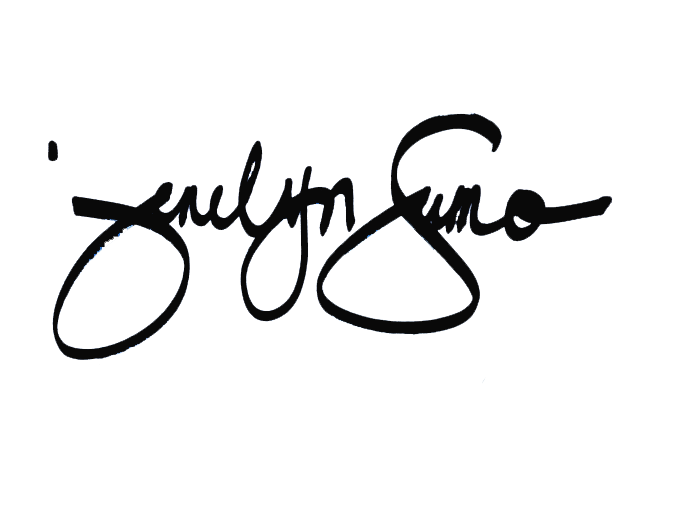 Jenelyn Sumo